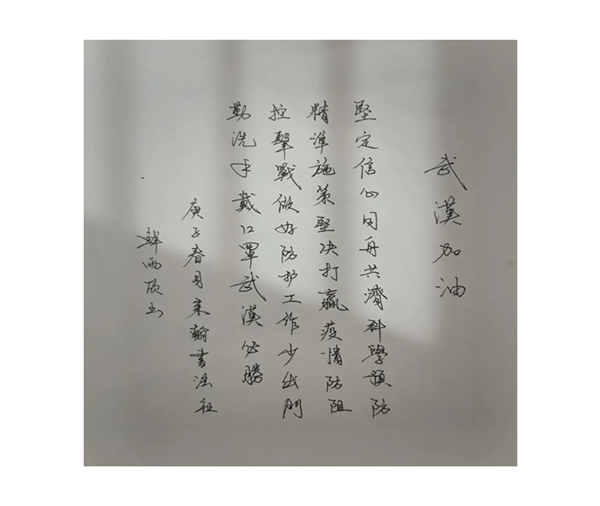 武漢加油
堅定信心同舟共濟科學預防
精準施策堅决打贏疫情防阻
控擊戰做好防护工作少出門
勤洗手戴口罩武漢必勝
庚子春月来翰書法社
鲜西欣书